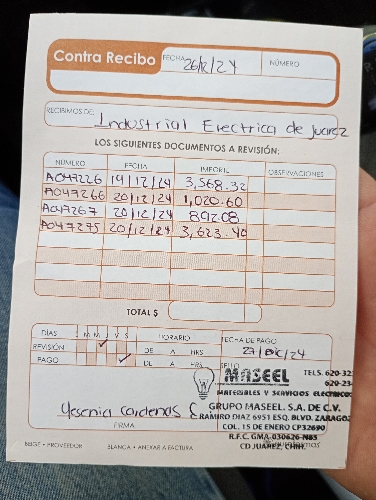 Contra Recibo
FECHA 26/12/24
NÚMERO
RECIBIMOS DE: Industrial Electrica de Juarez
LOS SIGUIENTES DOCUMENTOS A REVISIÓN:
NÚMERO FECHA IMPORTE OBSERVACIONES
A047226 19/12/24 3,568.32
A047266 20/12/24 1,020.60
A047267 20/12/24 892.08
A047275 20/12/24 3,623.40
TOTAL $
DÍAS L M M J V S HORARIO FECHA DE PAGO
REVISIÓN DE A HRS 27/Dic/24
PAGO DE A HRS SELLO
MASEEL TELS. 620-32
620-23
MATERIALES Y SERVICIOS ELECTRICOS
Yesenia Cardenas C
GRUPO MASEEL, S.A. DE C.V.
RAMIRO DIAZ 6951 ESQ. BLVD. ZARAGOZ
FIRMA
COL. 15 DE ENERO CP32690
R.F.C. GMA-030626-N85
BEIGE • PROVEEDOR BLANCA • ANEXAR A FACTURA
CD JUAREZ, CHIH.